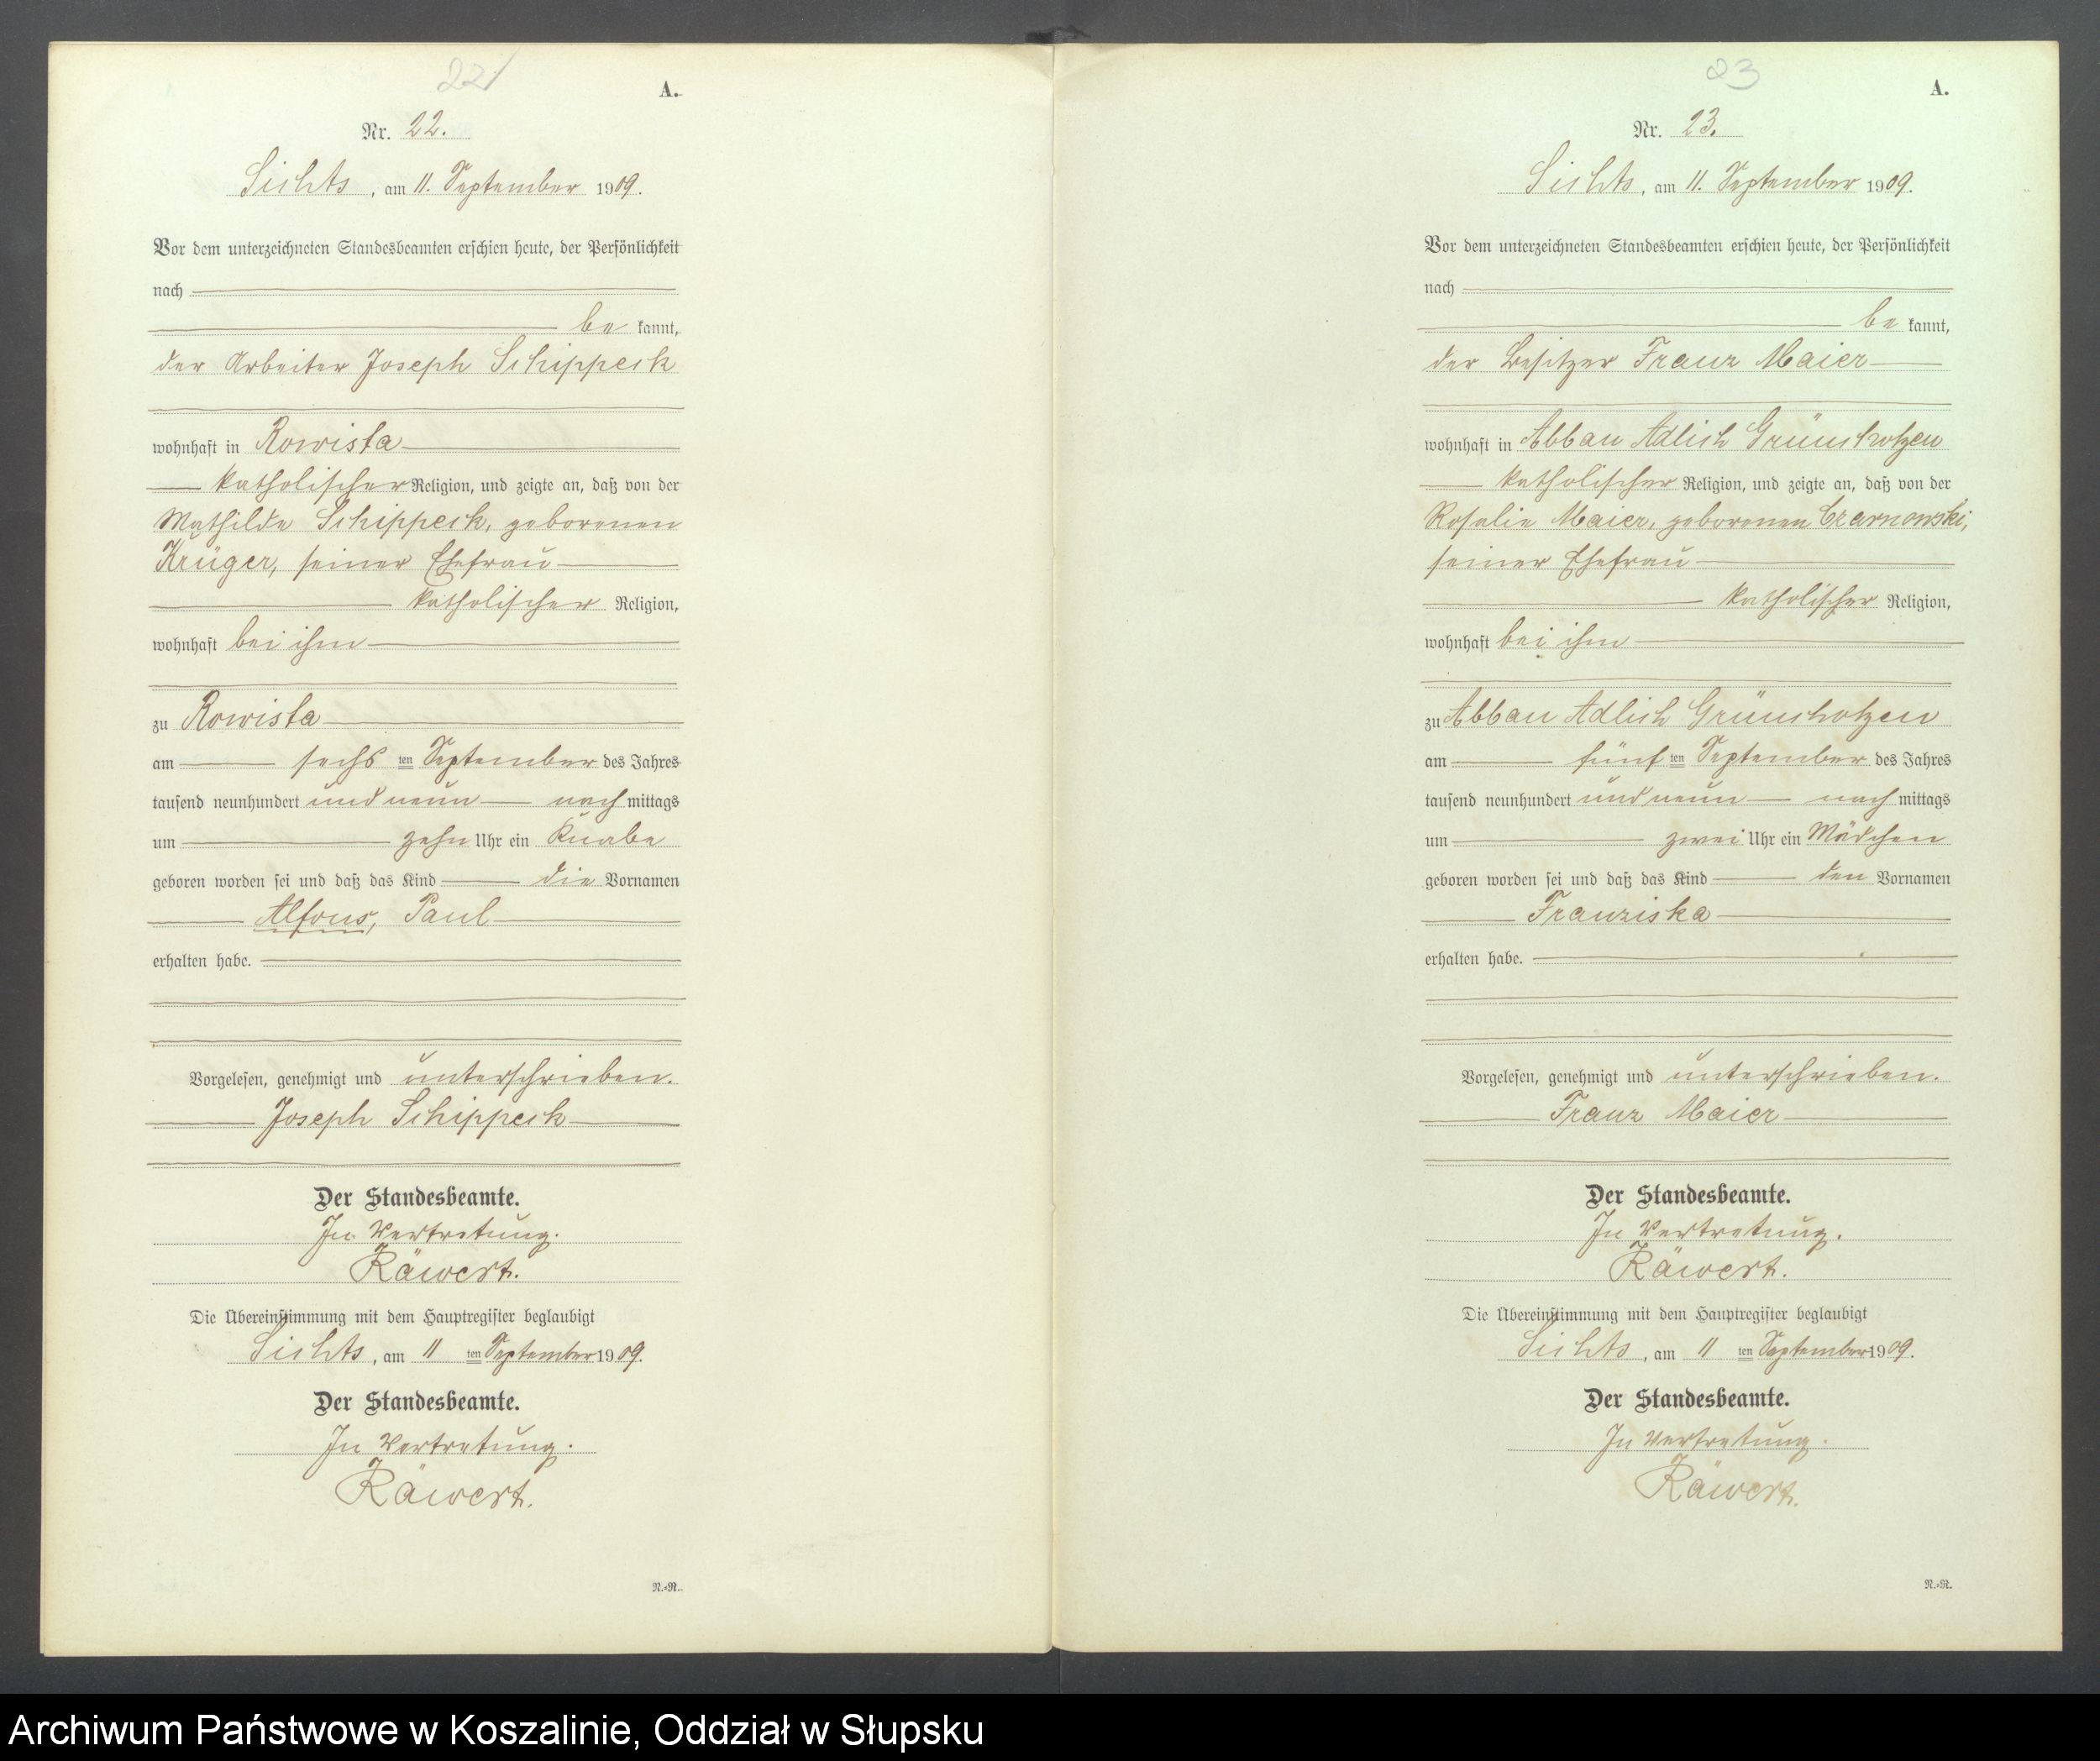 22
A.
Nr. 22.
Sichts, am 11. September 1909.
Vor dem unterzeichneten Standesbeamten erschien heute, der Persönlichkeit
nach
be kannt,
der Arbeiter Joseph Schippeck
wohnhaft in Rowista
katholischer Religion, und zeigte an, daß von der
Mathilde Schippeck, geborenen
Krüger, seiner Ehefrau
katholischer Religion,
wohnhaft bei ihm
zu Rowista
am sechs ten September des Jahres
tausend neunhundert und neun nach mittags
um zehn Uhr ein Knabe
geboren worden sei und daß das Kind die Vornamen
Alfons, Paul
erhalten habe.
Vorgelesen, genehmigt und unterschrieben.
Joseph Schippeck
Der Standesbeamte.
In Vertretung.
Räwert.
Die Übereinstimmung mit dem Hauptregister beglaubigt
Sichts, am 11 ten September 1909.
Der Standesbeamte.
In Vertretung.
Räwert.
N.=N.
23
A.
Nr. 23.
Sichts, am 11. September 1909.
Vor dem unterzeichneten Standesbeamten erschien heute, der Persönlichkeit
nach
be kannt,
der Besitzer Franz Maier
wohnhaft in Abbau Adlich Grünchotzen
katholischer Religion, und zeigte an, daß von der
Rosalie Maier, geborenen Czarnowski,
seiner Ehefrau
katholischer Religion,
wohnhaft bei ihm
zu Abbau Adlich Grünchotzen
am fünf ten September des Jahres
tausend neunhundert und neun nach mittags
um zwei Uhr ein Mädchen
geboren worden sei und daß das Kind den Vornamen
Franziska
erhalten habe.
Vorgelesen, genehmigt und unterschrieben.
Franz Maier
Der Standesbeamte.
In Vertretung.
Räwert.
Die Übereinstimmung mit dem Hauptregister beglaubigt
Sichts, am 11 ten September 1909.
Der Standesbeamte.
In Vertretung.
Räwert.
N.=N.
Archiwum Państwowe w Koszalinie, Oddział w Słupsku